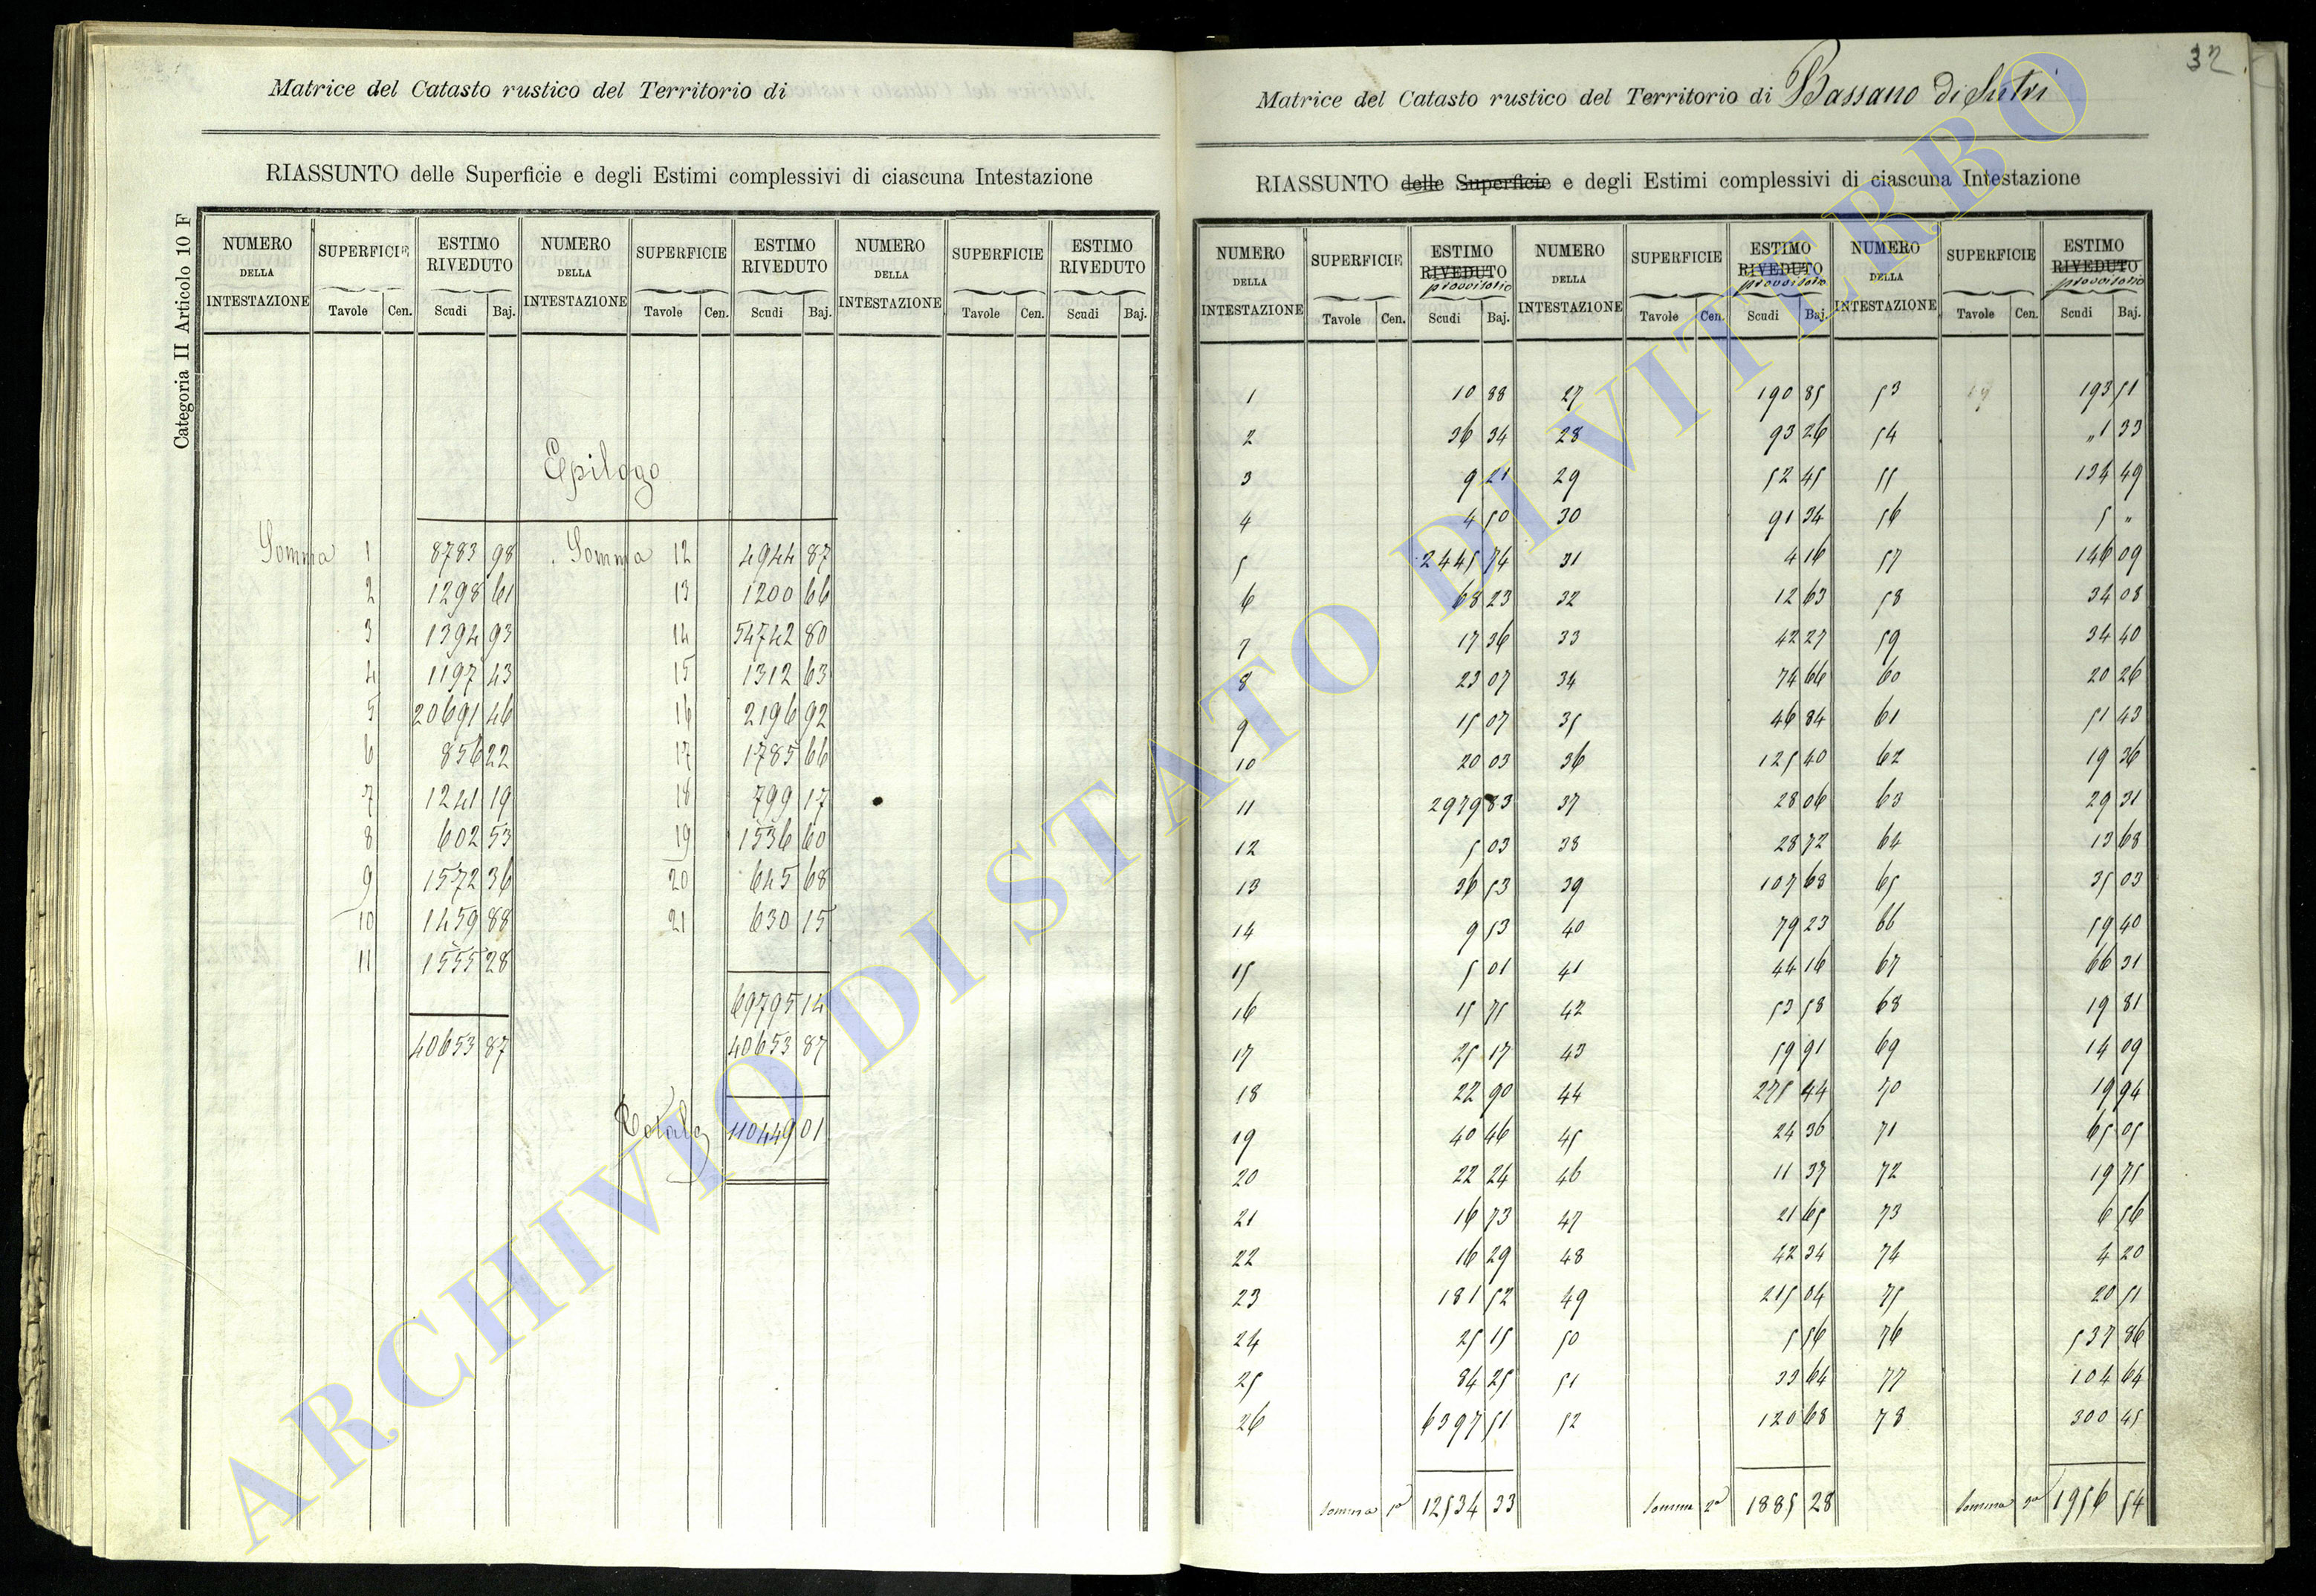 Matrice del Catasto rustico del Territorio di
RIASSUNTO delle Superficie e degli Estimi complessivi di ciascuna Intestazione
Categoria II Articolo 10 F
NUMERO DELLA INTESTAZIONE SUPERFICIE ESTIMO RIVEDUTO NUMERO DELLA INTESTAZIONE SUPERFICIE ESTIMO RIVEDUTO NUMERO DELLA INTESTAZIONE SUPERFICIE ESTIMO RIVEDUTO
Tavole Cen. Scudi Baj. Tavole Cen. Scudi Baj. Tavole Cen. Scudi Baj.
Epilogo
Somma 1 8783 98 Somma 12 4944 87
2 1298 61 13 1200 66
3 1394 93 14 54742 80
4 1197 43 15 1312 63
5 20691 46 16 2196 92
6 856 22 17 1785 66
7 1241 19 18 799 17
8 602 53 19 1536 60
9 1572 36 20 645 68
10 1459 88 21 630 15
11 1555 28
69795 14
40653 87 40653 87
Totale 110449 01
32
Matrice del Catasto rustico del Territorio di Bassano di Sutri
RIASSUNTO delle Superficie e degli Estimi complessivi di ciascuna Intestazione
NUMERO DELLA INTESTAZIONE SUPERFICIE ESTIMO RIVEDUTO provvisorio NUMERO DELLA INTESTAZIONE SUPERFICIE ESTIMO RIVEDUTO provvisorio NUMERO DELLA INTESTAZIONE SUPERFICIE ESTIMO RIVEDUTO provvisorio
Tavole Cen. Scudi Baj. Tavole Cen. Scudi Baj. Tavole Cen. Scudi Baj.
1 10 88 27 190 85 53 193 51
2 36 34 28 93 26 54 „1 33
3 9 21 29 52 45 55 134 49
4 4 50 30 91 34 56 5 „
5 2445 74 31 4 16 57 146 09
6 68 23 32 12 63 58 34 08
7 17 36 33 42 27 59 34 40
8 23 07 34 74 66 60 20 26
9 15 07 35 46 84 61 51 43
10 20 03 36 125 40 62 19 36
11 2979 83 37 28 06 63 29 31
12 5 03 38 28 72 64 13 68
13 36 53 39 107 68 65 35 03
14 9 53 40 79 23 66 59 40
15 5 01 41 44 16 67 66 31
16 15 75 42 53 58 68 19 81
17 25 17 43 59 91 69 14 09
18 22 90 44 275 44 70 19 94
19 40 46 45 24 36 71 65 05
20 22 24 46 11 37 72 19 75
21 16 73 47 21 65 73 6 56
22 16 29 48 42 34 74 4 20
23 181 52 49 215 04 75 20 51
24 25 15 50 5 56 76 537 86
25 84 25 51 33 64 77 104 64
26 6397 51 52 120 68 78 300 45
Somma 1a 12534 33 Somma 2a 1885 28 Somma 3a 1956 54
ARCHIVIO DI STATO DI VITERBO